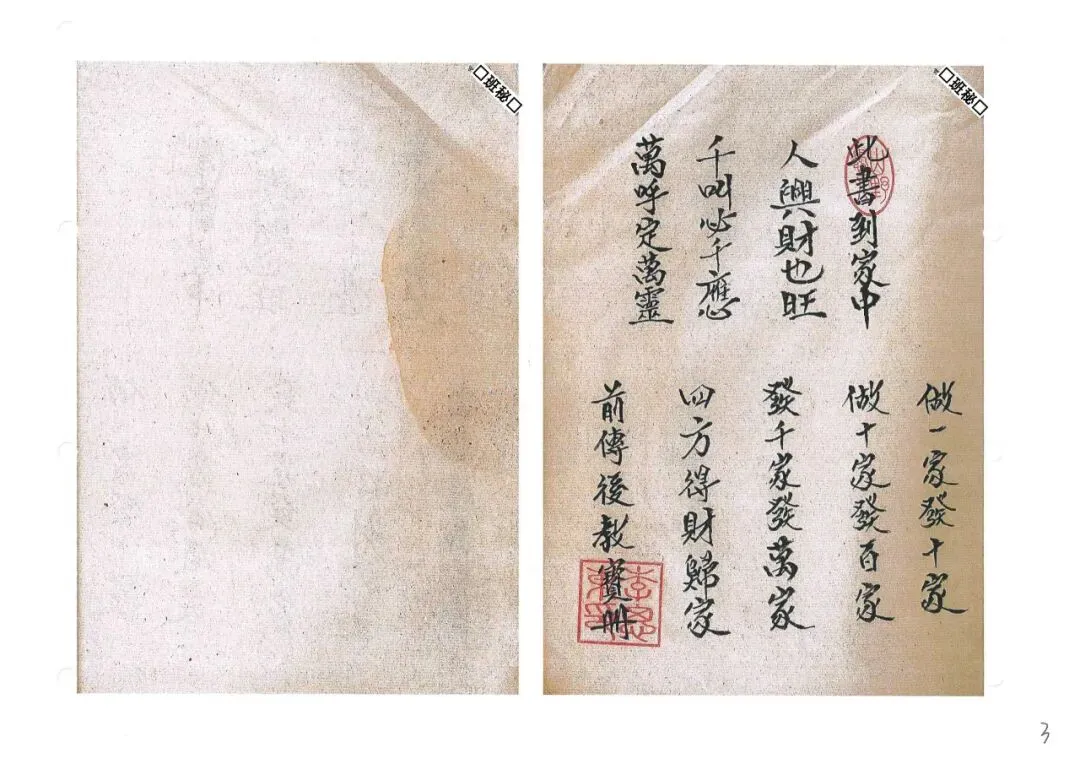 □班秘□
□班秘□
此書到家中
人興財也旺
千叫必千應
萬呼定萬靈
做一家發十家
做十家發百家
發千家發萬家
四方得財歸家
前傳後教寶冊
3